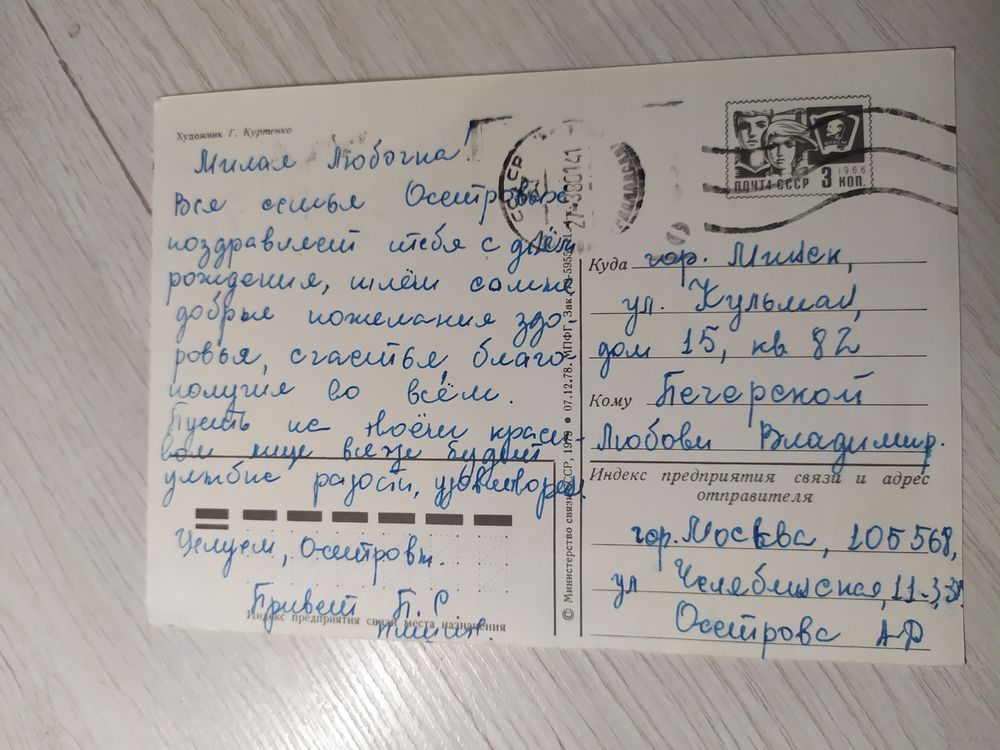 Художник Г. Куртенко
Милая Любочка!
Вся семья Осетровых
поздравляет тебя с днём
рождения, шлём самые
добрые пожелания здо-
ровья, счастья, благо-
получия во всём.
Пусть на твоём краси-
вом лице всегда будет
улыбка радости,
Целуем, Осетровы.
Привет П. С.
Индекс предприятия связи места назначения
© Министерство связи СССР, 1979 ● 07.12.78. МПФГ. Зак.
СССР
ПОЧТА СССР 3 КОП.
1966
Куда гор. Минск,
ул. Кульман,
дом 15, кв 82
Кому Печерской
Любови Владимир.
Индекс предприятия связи и адрес
отправителя
гор. Москва, 105568,
ул Челябинская,
Осетрова